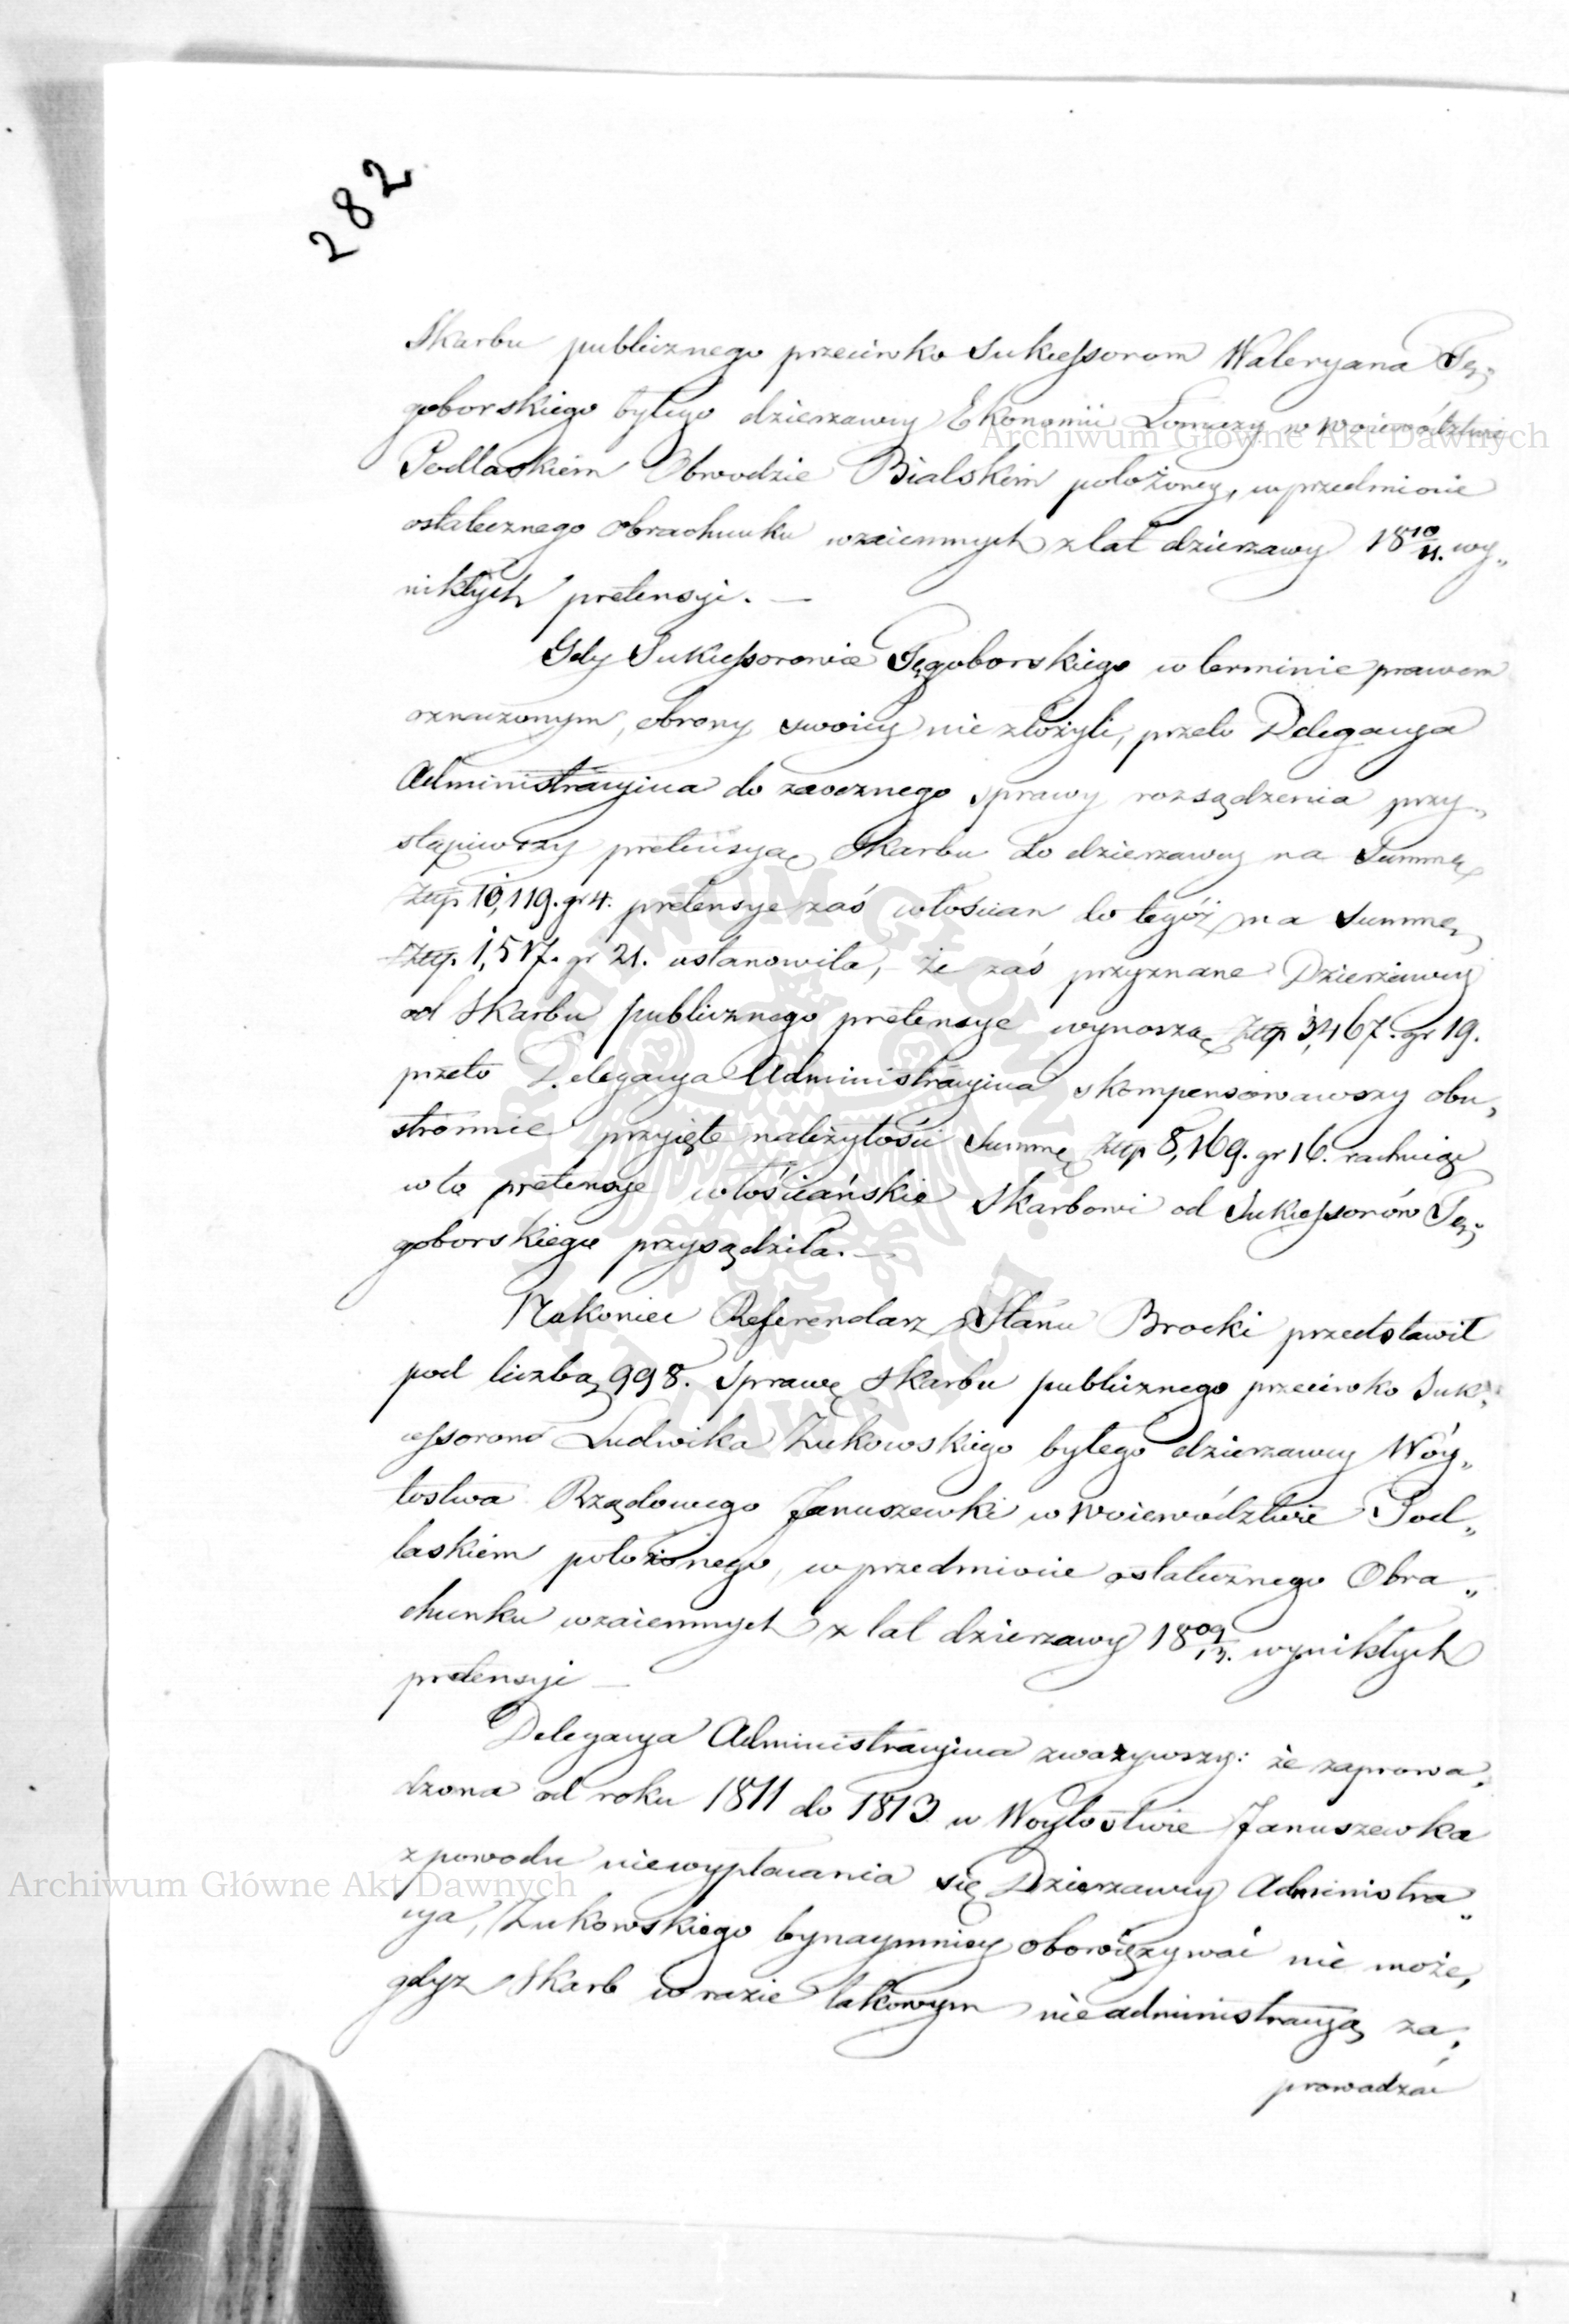 282
Skarbu publicznego przeciwko Sukcessorom Waleryana Tę„
goborskiego byłego dzierzawcy Ekonomii Łomazy w Woiewództwie
Podlaskiém Obwodzie Bialskim położoney, w przedmiocie
ostatecznego obrachunku wzaiemnych z lat dzierzawy 18 10/11. wy„
nikłych pretensyi. —
Gdy Sukcessorowie Tęgoborskiego w terminie prawem
oznaczonym, obrony swoiey nie złożyli, przeto Delegacya
Administracyina do zaocznego sprawy rozsądzenia przy„
stąpiwszy pretensyą Skarbu do dzierzawcy na Summę
Złtp. 10,119. gr 4. pretensye zaś włoscian do tegóż na Summę
Złtp. 1,517. gr 21. ustanowiła, że zaś przyznane Dzierżawcy
od Skarbu publicznego pretensye wynoszą Złtp 3,467. gr 19.
przeto Delegacya Administracyina skompensowawszy obu„
stronnie przyięte należytości Summę Złtp 8,169. gr 16. rachuiąc
w to pretensye włościańskie Skarbowi od Sukcessorów Tę„
goborskiego przysądziła. —
Nakoniec Referendarz Stanu Brocki przedstawił
pod liczbą 998. Sprawę Skarbu publicznego przeciwko Suk„
cessorom Ludwika Zukowskiego byłego dzierzawcy Wóy„
tostwa Rządowego Januszewki w Woiewództwie Pod„
laskiem położonego, w przedmiocie ostatecznego Obra„
chunku wzaiemnych z lat dzierzawy 18 09/13. wynikłych
pretensyi —
Delegacya Administracyina zważywszy: że zaprowa„
dzona od roku 1811 do 1813 w Woytostwie Januszewka
z powodu niewypłacania się Dzierzawcy Administra„
cya, Zukowskiego bynaymniey obowięzywać nie może,
gdyz Skarb w razie takowym nie administracyą za„
prowadzać
Archiwum Główne Akt Dawnych
Archiwum Główne Akt Dawnych